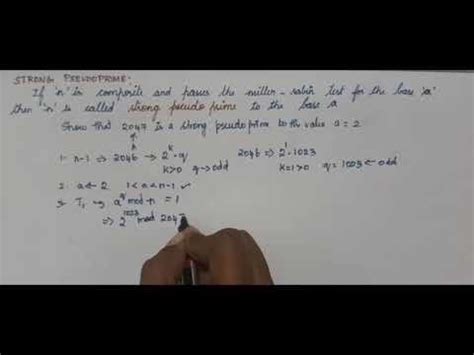 STRONG PSEUDOPRIME:
If 'n' is composite and passes the miller-rabin test for the base 'a'
then 'n' is called strong pseudo prime to the base a
Show that 2047 is a strong pseudoprime to the value a = 2
1. n-1 => 2046 -> 2^k · q 2046 => 2^1 · 1023
k>0 q -> odd k=1>0 q = 1023 <- odd
2. a <- 2 1 < a < n-1 ✓
3. T1 a^q mod n = 1
=> 2^1023 mod 2047